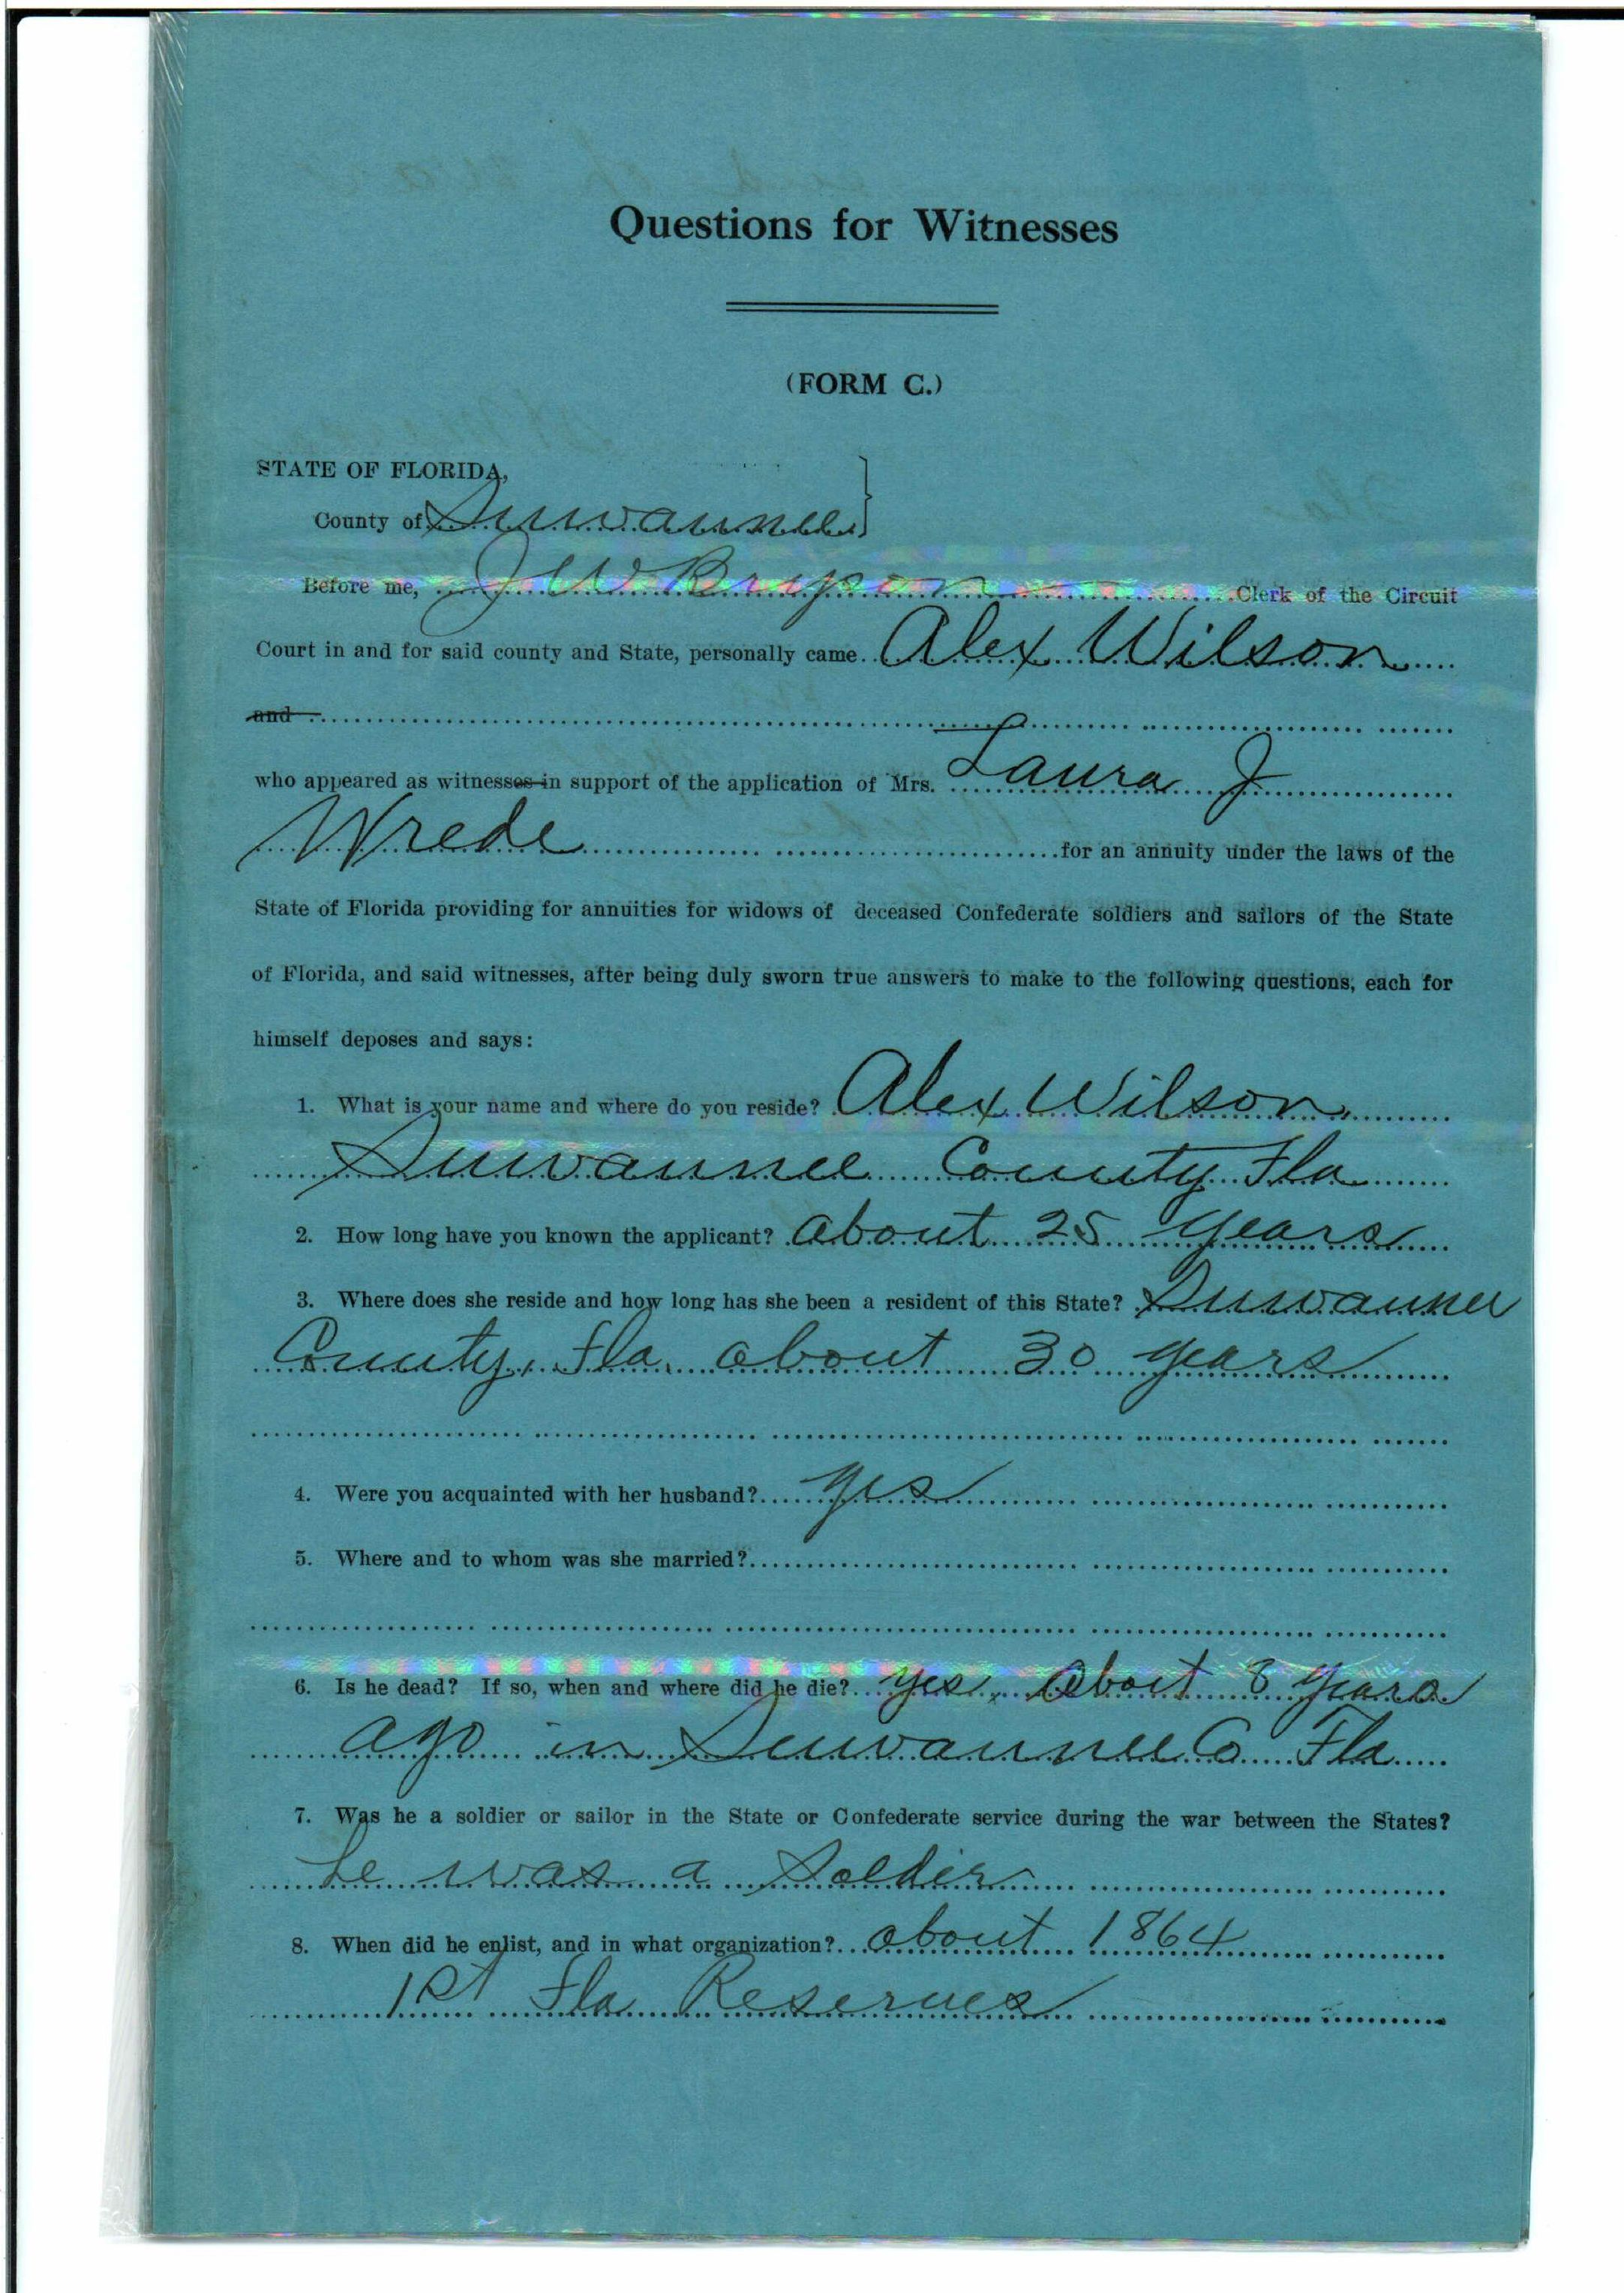 Questions for Witnesses
(FORM C.)
STATE OF FLORIDA,
County of Suwannee
Before me, J W Bryson Clerk of the Circuit
Court in and for said county and State, personally came Alex Wilson
and
who appeared as witnesses in support of the application of Mrs. Laura J
Wrede for an annuity under the laws of the
State of Florida providing for annuities for widows of deceased Confederate soldiers and sailors of the State
of Florida, and said witnesses, after being duly sworn true answers to make to the following questions, each for
himself deposes and says:
1. What is your name and where do you reside? Alex Wilson,
Suwannee County Fla
2. How long have you known the applicant? about 25 years
3. Where does she reside and how long has she been a resident of this State? Suwannee
County, Fla. about 30 years
4. Were you acquainted with her husband? yes
5. Where and to whom was she married?
6. Is he dead? If so, when and where did he die? yes, about 8 years
ago in Suwannee Co Fla
7. Was he a soldier or sailor in the State or Confederate service during the war between the States?
he was a Soldier
8. When did he enlist, and in what organization? about 1864
1st Fla Reserves